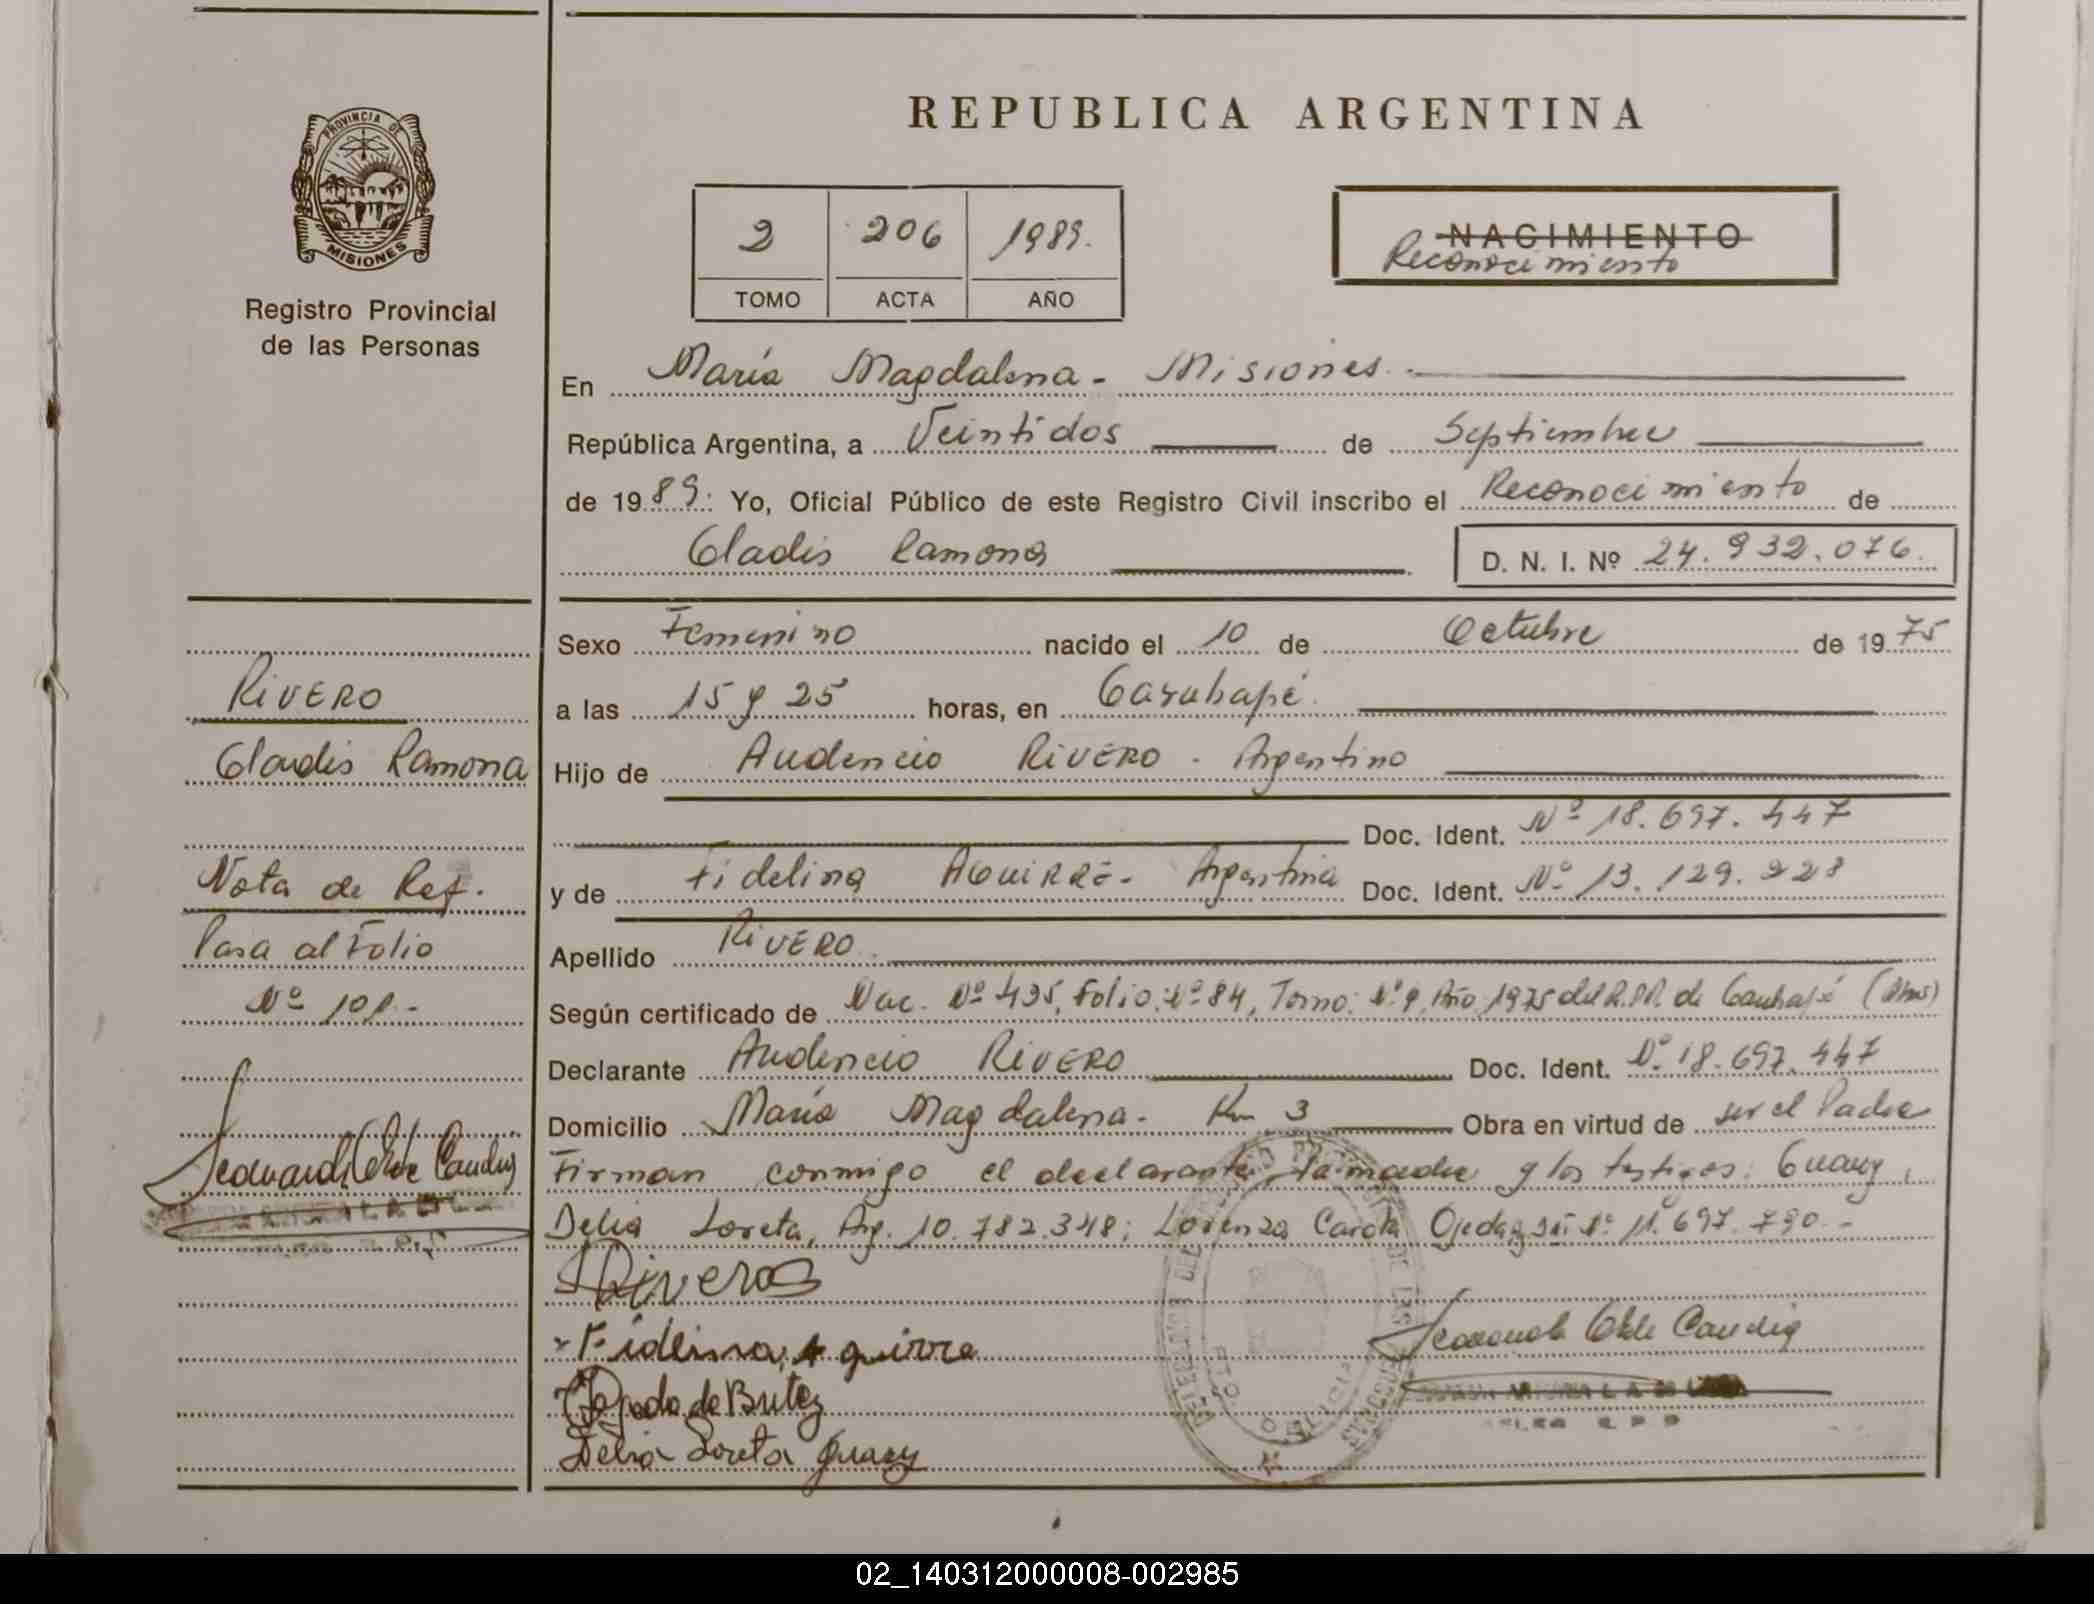 REPUBLICA ARGENTINA
PROVINCIA DE MISIONES
Registro Provincial
de las Personas
2 206 1989.
TOMO ACTA AÑO
NACIMIENTO
Reconocimiento
En María Magdalena - Misiones.
República Argentina, a Veintidos de Septiembre
de 1989. Yo, Oficial Público de este Registro Civil inscribo el Reconocimiento de
Gladis Ramona D. N. I. Nº 24.932.076.
Sexo Femenino nacido el 10 de Octubre de 1975
a las 15 y 25 horas, en Caruhapé.
Hijo de Audencio RIVERO - Argentino
Doc. Ident. Nº 18.697.447
y de Fidelina AGUIRRE - Argentina Doc. Ident. Nº 13.129.228
Apellido RIVERO
Según certificado de Nac. Nº 495, Folio: Nº 84, Tomo: Nº Año 1975 del R.P.P. de Caruhapé (Mnes)
Declarante Audencio RIVERO Doc. Ident. Nº 18.697.447
Domicilio María Magdalena - Km 3 Obra en virtud de ser el Padre
Firman conmigo el declarante, la madre y los testigos: Guany,
Delia Loreta, Arg. 10.782.348; Lorenza Carota Ojeda, Nº 11.697.790.-
RIVERO
Gladis Ramona
Nota de Ref.
Pasa al Folio
Nº 101.-
Rivero
Fidelina Aguirre
Ojeda de Britez
Delia Loreta Guany
02_140312000008-002985